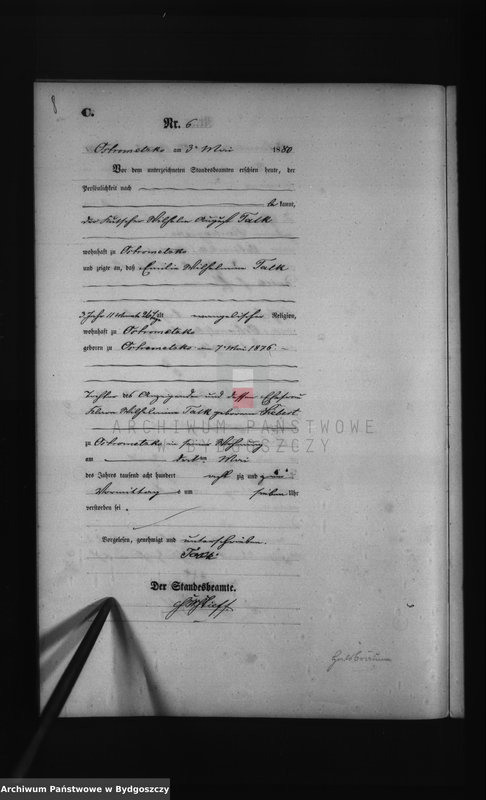 8
C.
Nr. 6
Ostrometzko am 3ten Mai 1880
Vor dem unterzeichneten Standesbeamten erschien heute, der
Persönlichkeit nach
be kannt,
der Kutscher Wilhelm August Talk
wohnhaft zu Ostrometzko
und zeigte an, daß Emilie Wilhelmine Talk
3 Jahr 11 Monate 26 Tg alt evangelischer Religion,
wohnhaft zu Ostrometzko
geboren zu Ostrometzko am 7ten Mai 1876
Tochter des Anzeigenden und dessen Ehefrau
Wilhelmine Talk geborenen
zu Ostrometzko in seiner Wohnung
am dritten Mai
des Jahres tausend acht hundert acht zig und
Vormittags um sieben Uhr
verstorben sei.
Vorgelesen, genehmigt und unterschrieben.
Talk
Der Standesbeamte.
Halsbräune
ARCHIWUM PAŃSTWOWE
W BYDGOSZCZY
Archiwum Państwowe w Bydgoszczy